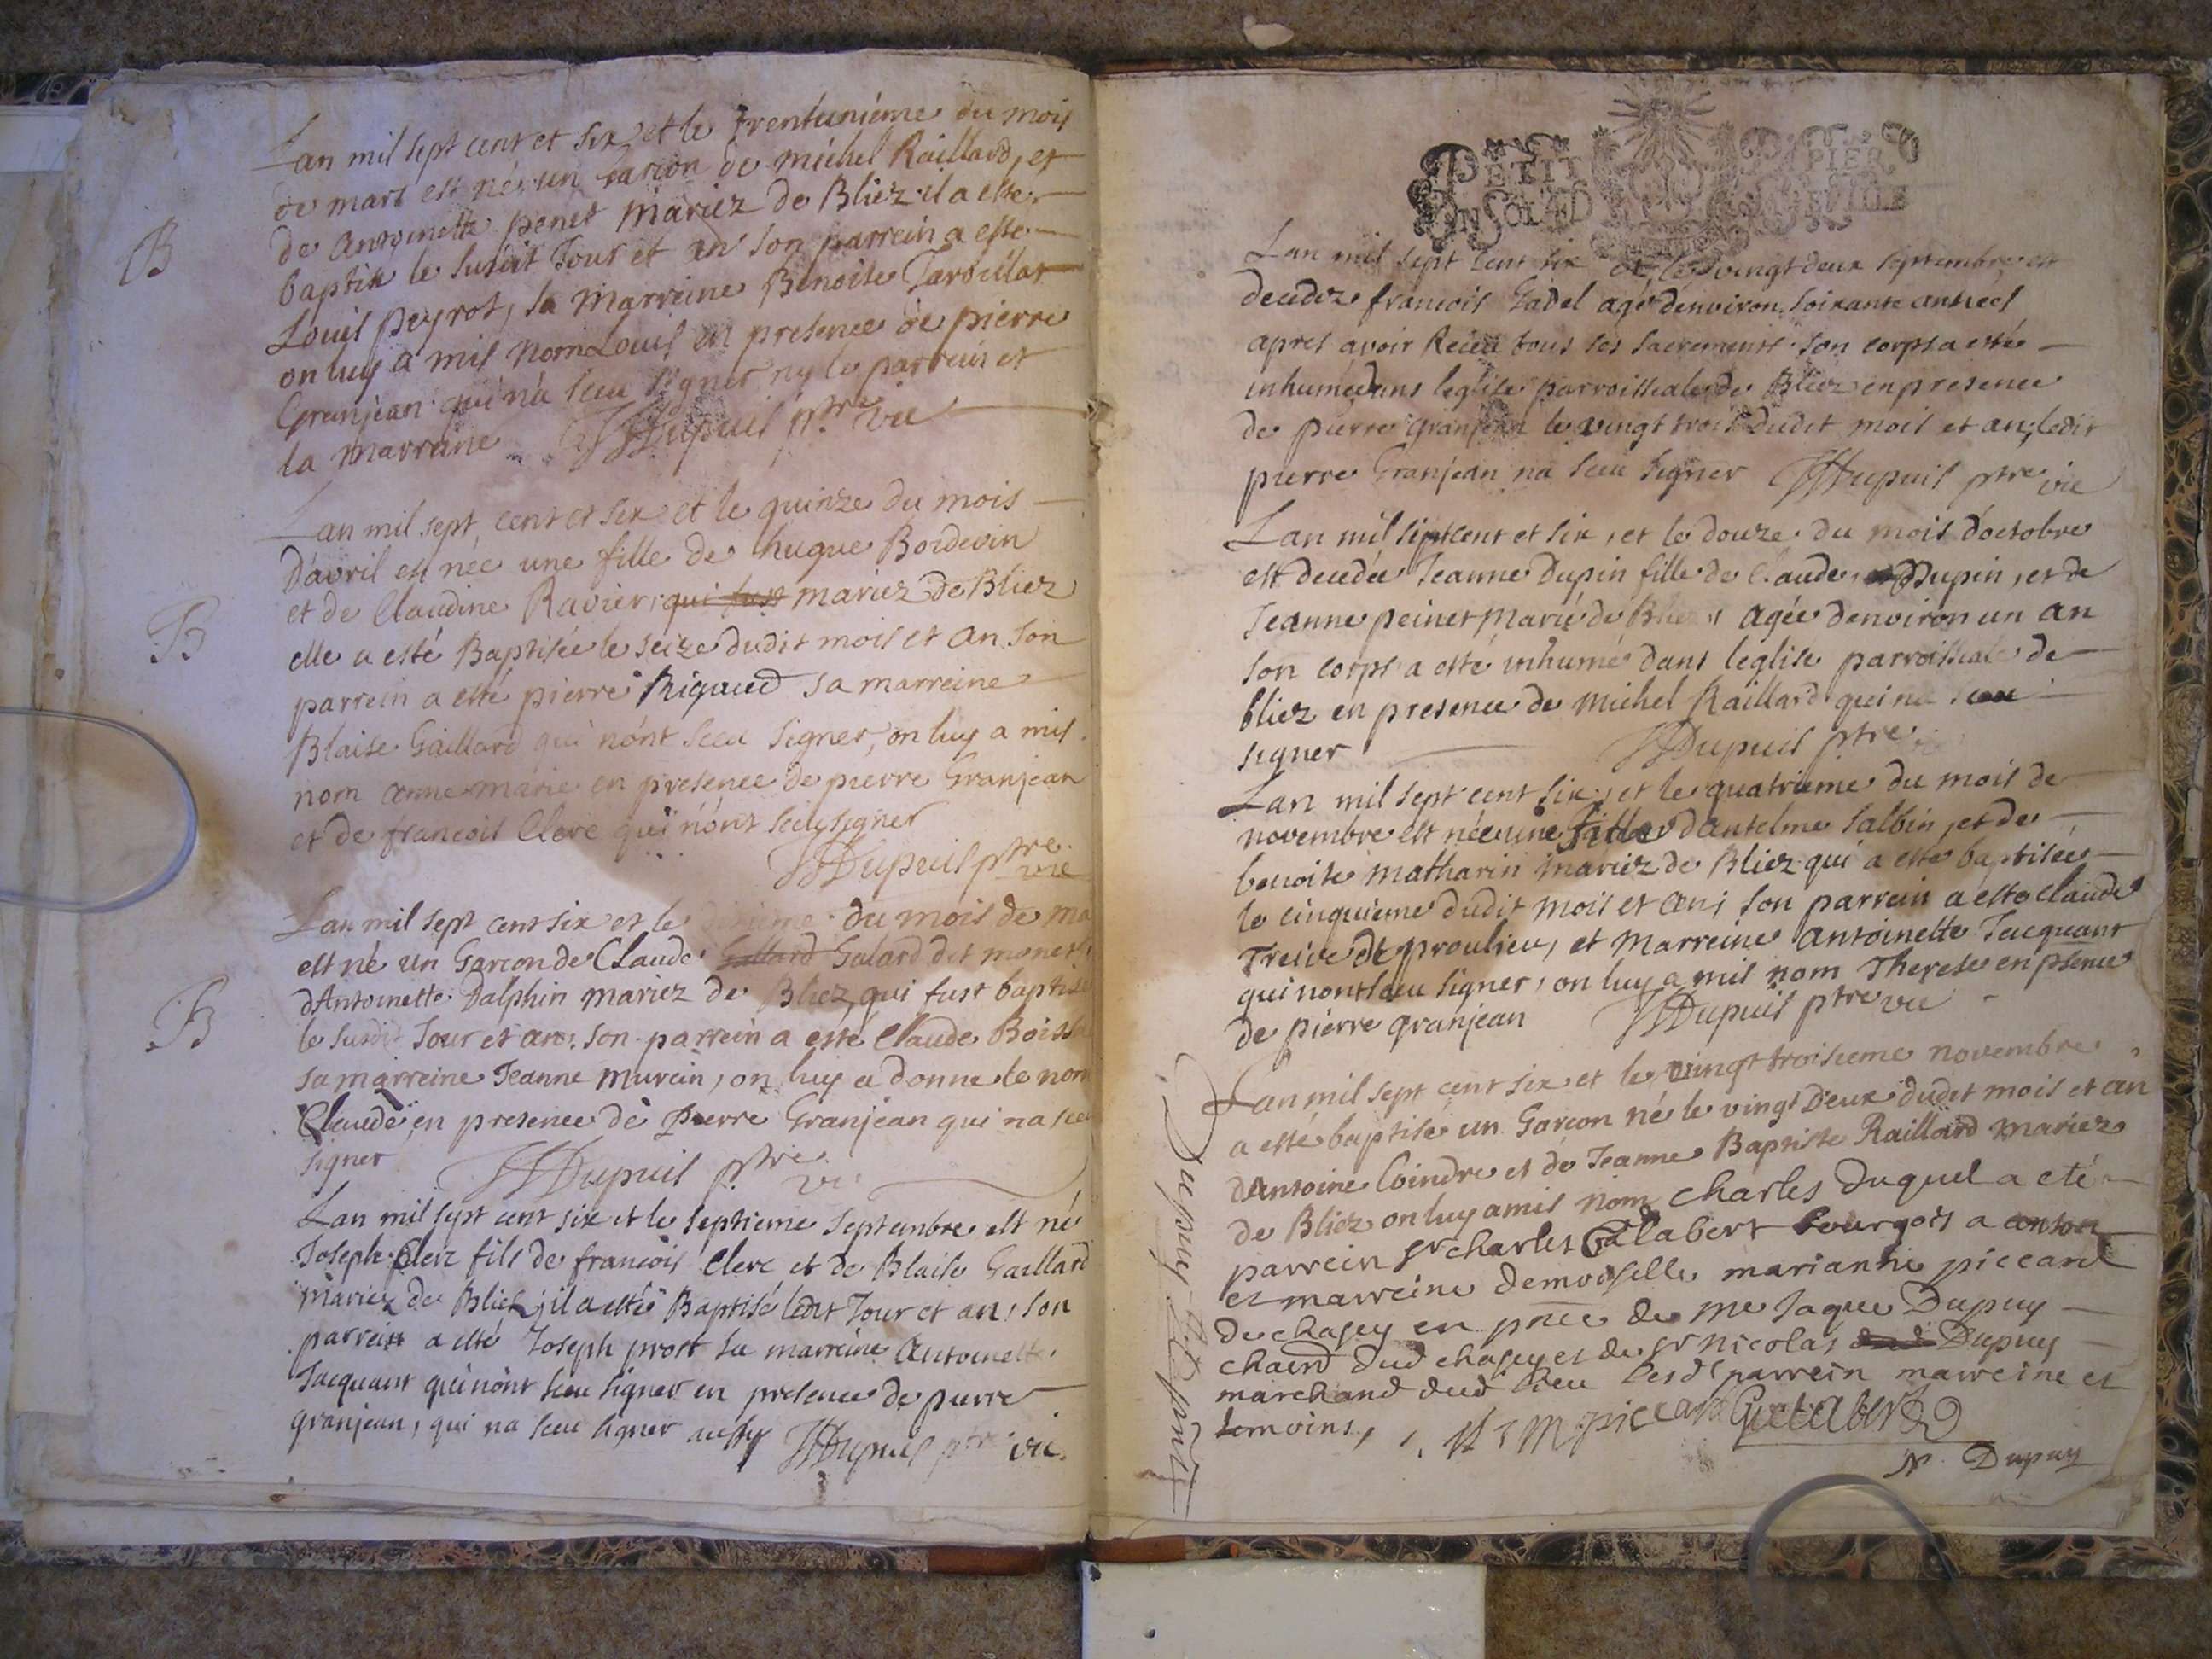 Lan mil sept cent et six et le trentunième du mois
de mars est né un Garcon de michel Raillard, et
de Antoinette penet mariez de Bliez il a esté
B
baptisé le susdit Jour et an son parrein a esté
Louis peyrot, sa marreine Benoite Tardillat
on luy a mis nom Louis en presence de pierre
Granjean qui na sceu signer ny le parrein et
la marreine Dupuis ptre vic
Lan mil sept cent et six et le quinze du mois
D'avril est née une fille de hugue Boidevin
et de Claudine Ravier, mariez de Bliez
B
elle a esté Baptisée le seize dudit mois et an son
parrein a esté pierre Rigaud sa marreine
Blaise Gaillard qui nont sceu signer, on luy a mis
nom anne marie en presence de pierre Granjean
et de francois Clerc qui nont sceu signer
Dupuis ptre vic
Lan mil sept cent six et le du mois de
est né un Garcon de Claude Gallard Galard dit monet
dAntoinette Dalphin mariez de Bliez, qui fust baptisé
B
le susdit Jour et an, son parrein a esté Claude
sa marreine Jeanne murcin, on luy a donne le nom
Claude en presence de Pierre Granjean qui na sceu
signer Dupuis ptre vic
Lan mil sept cent six et le septieme septembre est né
Joseph Clerc fils de francois Clerc et de Blaise Gaillard
mariez de Bliez, il a esté Baptisé ledit Jour et an, son
parrein a esté Joseph prost sa marreine Antoinette
Jacquant qui nont sceu signer en presence de pierre
granjean, qui na sceu signer aussy Dupuis ptre vic.
PETIT PAPIER
UN SOL
Lan mil sept cent six et le vingt deux septembre est
decedez francois Gadel agé denviron soixante années
apres avoir Receu tous ses sacrements son corps a esté
inhumé dans leglise parroissiale de Bliez en presence
de pierre granjean le vingt trois dudit mois et an, ledit
pierre Granjean na sceu signer Dupuis ptre vic
Lan mil sept cent et six, et le douze du mois d'octobre
est decedée Jeanne Dupin fille de Claude Dupin, et de
Jeanne peinet marié de Bliez, agée denviron un an
son corps a esté inhumé dans leglise parroissiale de
bliez en presence de michel Raillard qui na sceu
signer Dupuis ptre
Lan mil sept cent six, et le quatrieme du mois de
novembre est née une fille dantelme salbin, et de
benoite matharin mariez de Bliez qui a esté baptisée
le cinquieme dudit mois et an, son parrein a esté claude
Treive de proulieu, et marreine Antoinette Jacquant
qui nont sceu signer, on luy a mis nom Therese en psence
de pierre granjean Dupuis ptre vic
Lan mil sept cent six et le vingt troisieme novembre
a esté baptisé un Garcon né le vingt Deux dudit mois et an
dAntoine Coindre et de Jeanne Baptiste Raillard mariez
de Bliez on luy a mis nom Charles duquel a eté
parrein Sr Charles Galabert bourgois a
et marreine demoiselle marianne piccard
de chasey en pnce de me Jaque Dupuy
dud chasey et de Sr nicolas Dupuy
marchand dud lieu lesd parrein marreine et
temoins, M piccard Galabert
N Dupuy
Dupuy